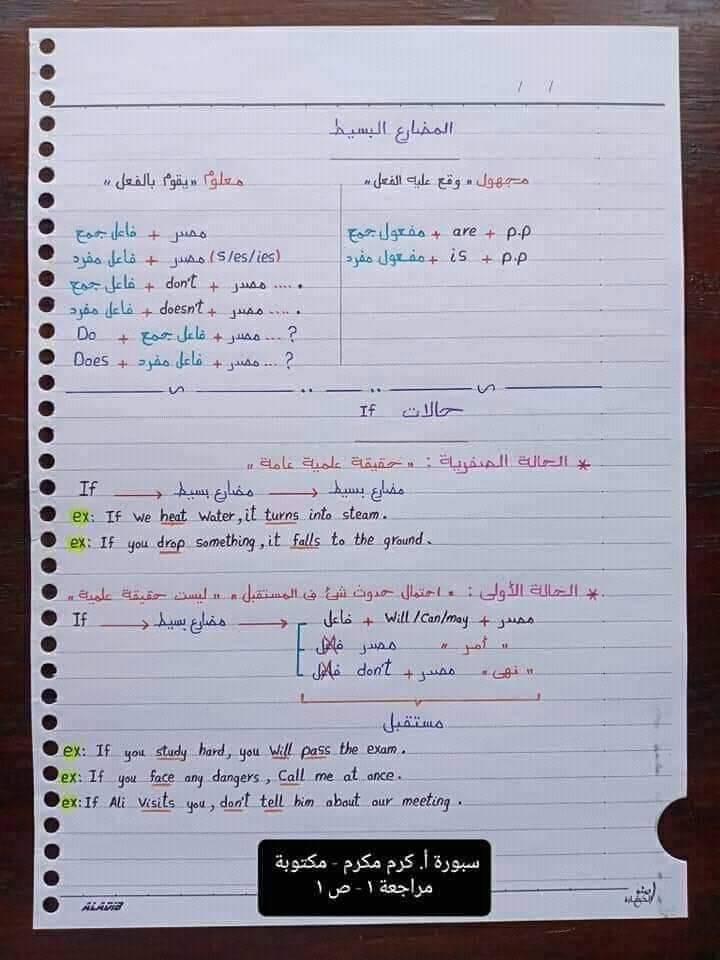 / /
المضارع البسيط
معلوم "يقوم بالفعل"
فاعل جمع + مصدر
فاعل مفرد + مصدر (s/es/ies)
فاعل جمع + don't + مصدر .....
فاعل مفرد + doesn't + مصدر .....
Do + فاعل جمع + مصدر ... ?
Does + فاعل مفرد + مصدر ... ?
مجهول "وقع عليه الفعل"
مفعول جمع + are + p.p
مفعول مفرد + is + p.p
حالات If
* الحالة الصفرية : "حقيقة علمية عامة"
If → مضارع بسيط → مضارع بسيط
ex: If we heat water, it turns into steam.
ex: If you drop something, it falls to the ground.
* الحالة الأولى : "احتمال حدوث شئ فى المستقبل" "ليست حقيقة علمية"
If → مضارع بسيط → فاعل + Will/Can/may + مصدر
فاعل مصدر "أمر"
فاعل don't + مصدر "نهى"
مستقبل
ex: If you study hard, you will pass the exam.
ex: If you face any dangers, Call me at once.
ex: If Ali visits you, don't tell him about our meeting.
سبورة أ. كرم مكرم - مكتوبة
مراجعة ١ - ص ١
ALADIB